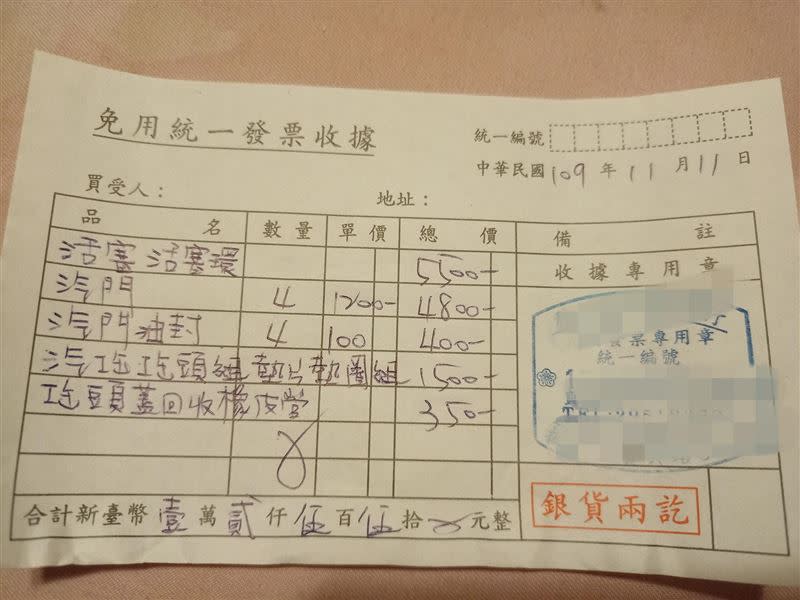 免用統一發票收據
統一編號
中華民國109年11月11日
買受人：　地址：
品名　數量　單價　總價　備註
活塞 活塞環　5500-　收據專用章
汽門　4　1200-　4800-
汽門油封　4　100　400-
發票專用章
統一編號
汽缸缸頭組 墊片墊圈組　1500-
缸頭蓋回收橡皮管　350-
合計新臺幣壹萬貳仟伍百伍拾元整
銀貨兩訖